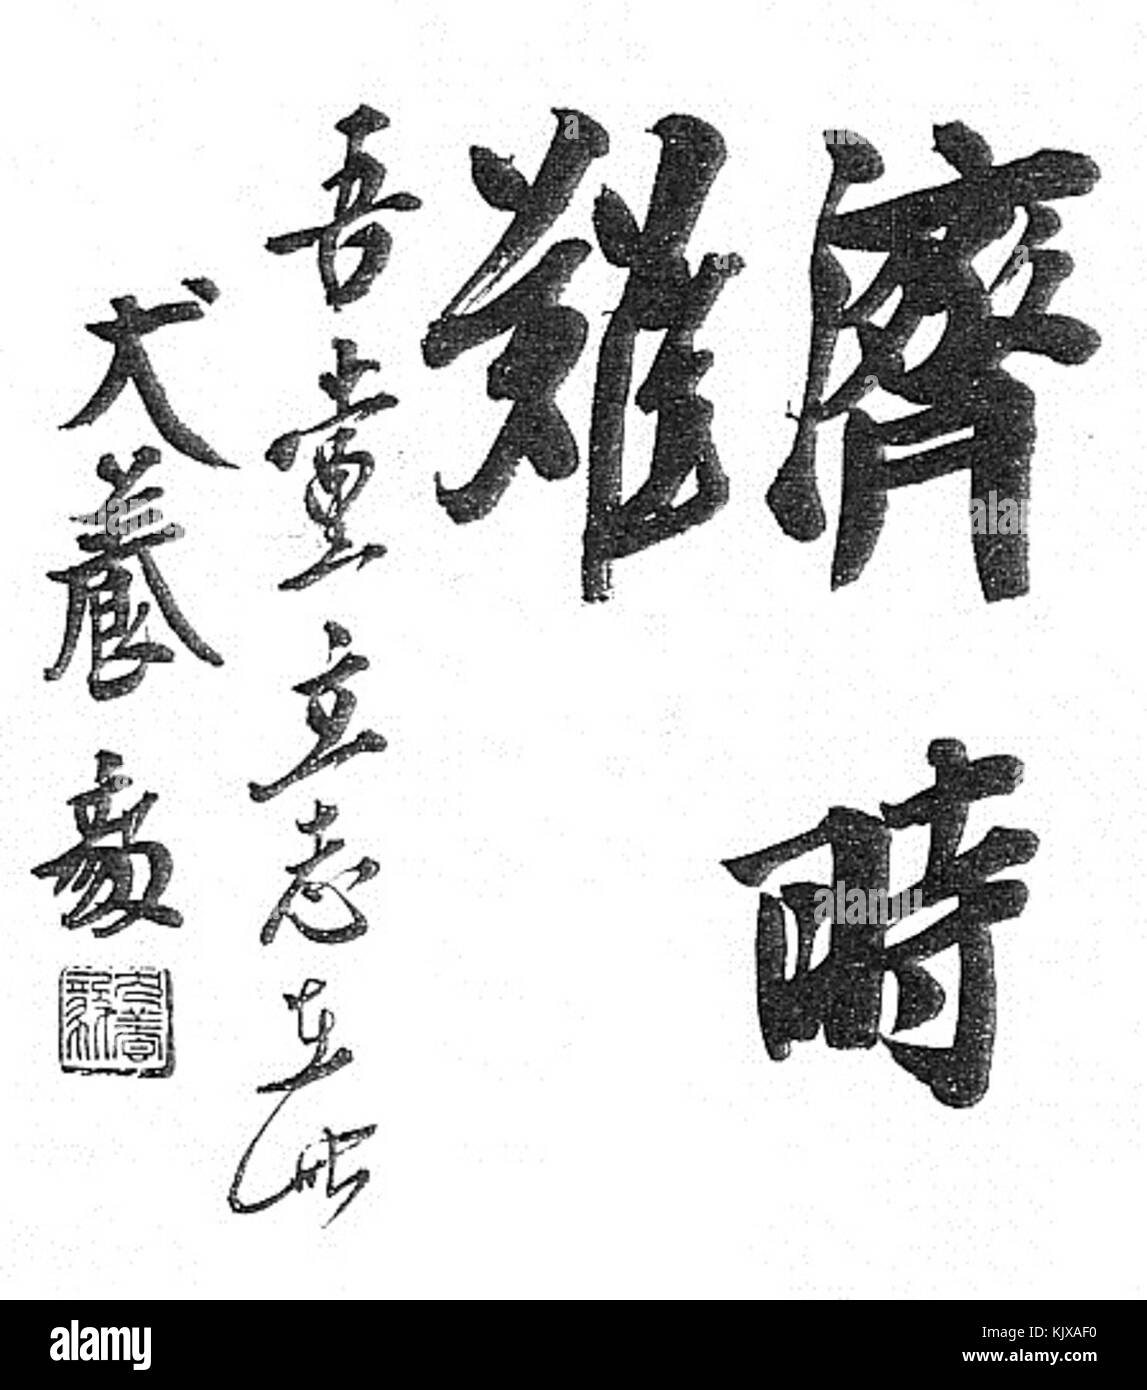 濟時
難
吾黨立志在此
犬養毅
alamy
Image ID: KJXAF0
www.alamy.com